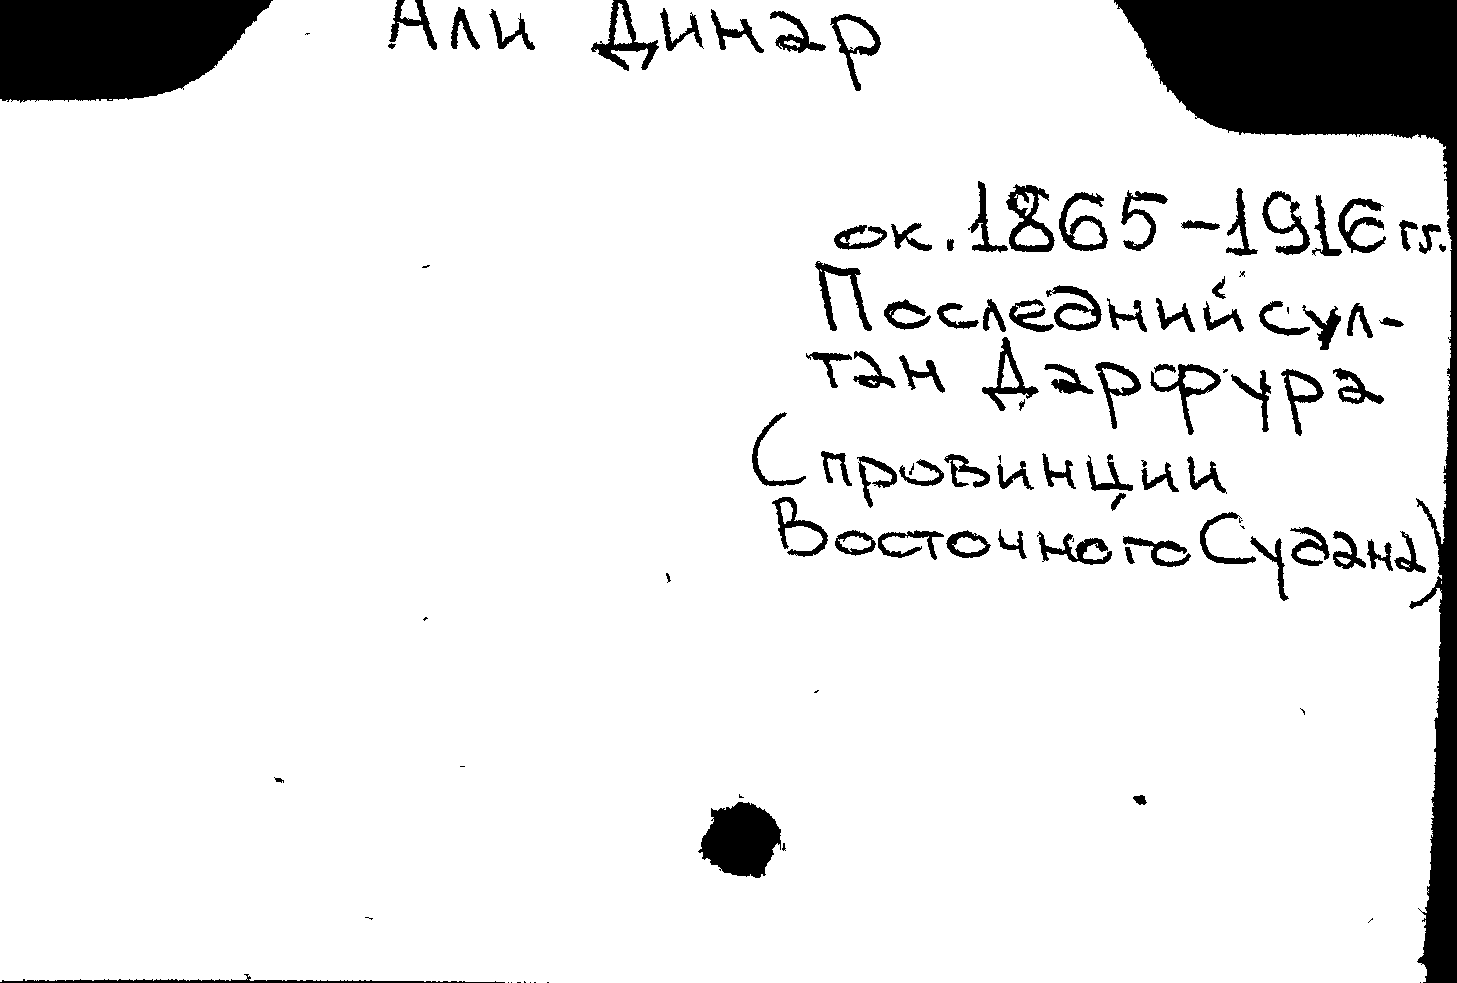 Али Динар
ок. 1865-1916 гг.
Последний сул-
тан Дарфура
(провинции
Восточного Судана)